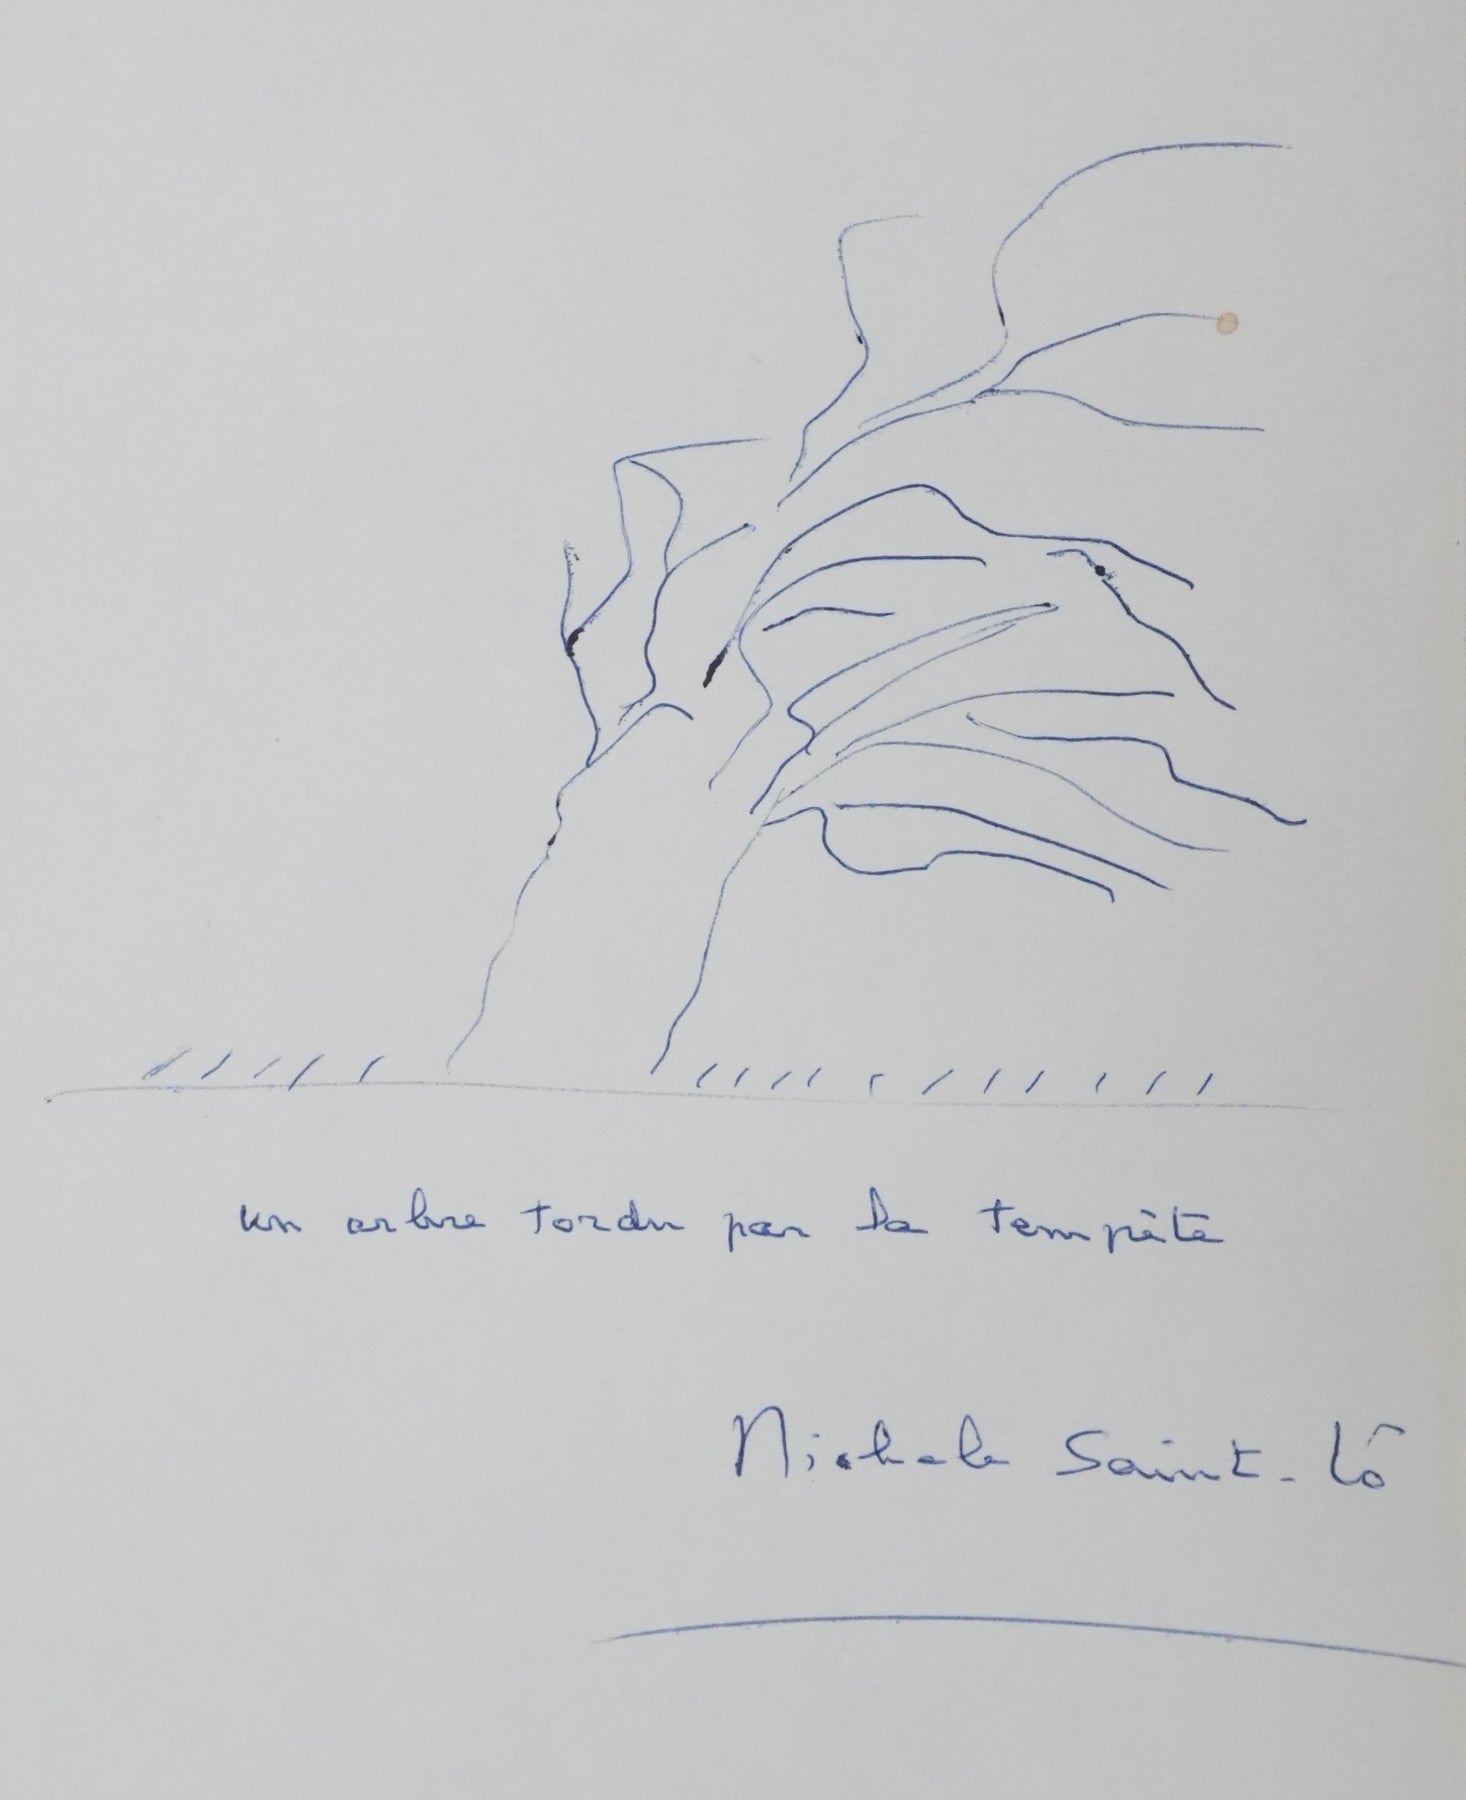 un arbre tordu par la tempête
Michele Saint-Lô